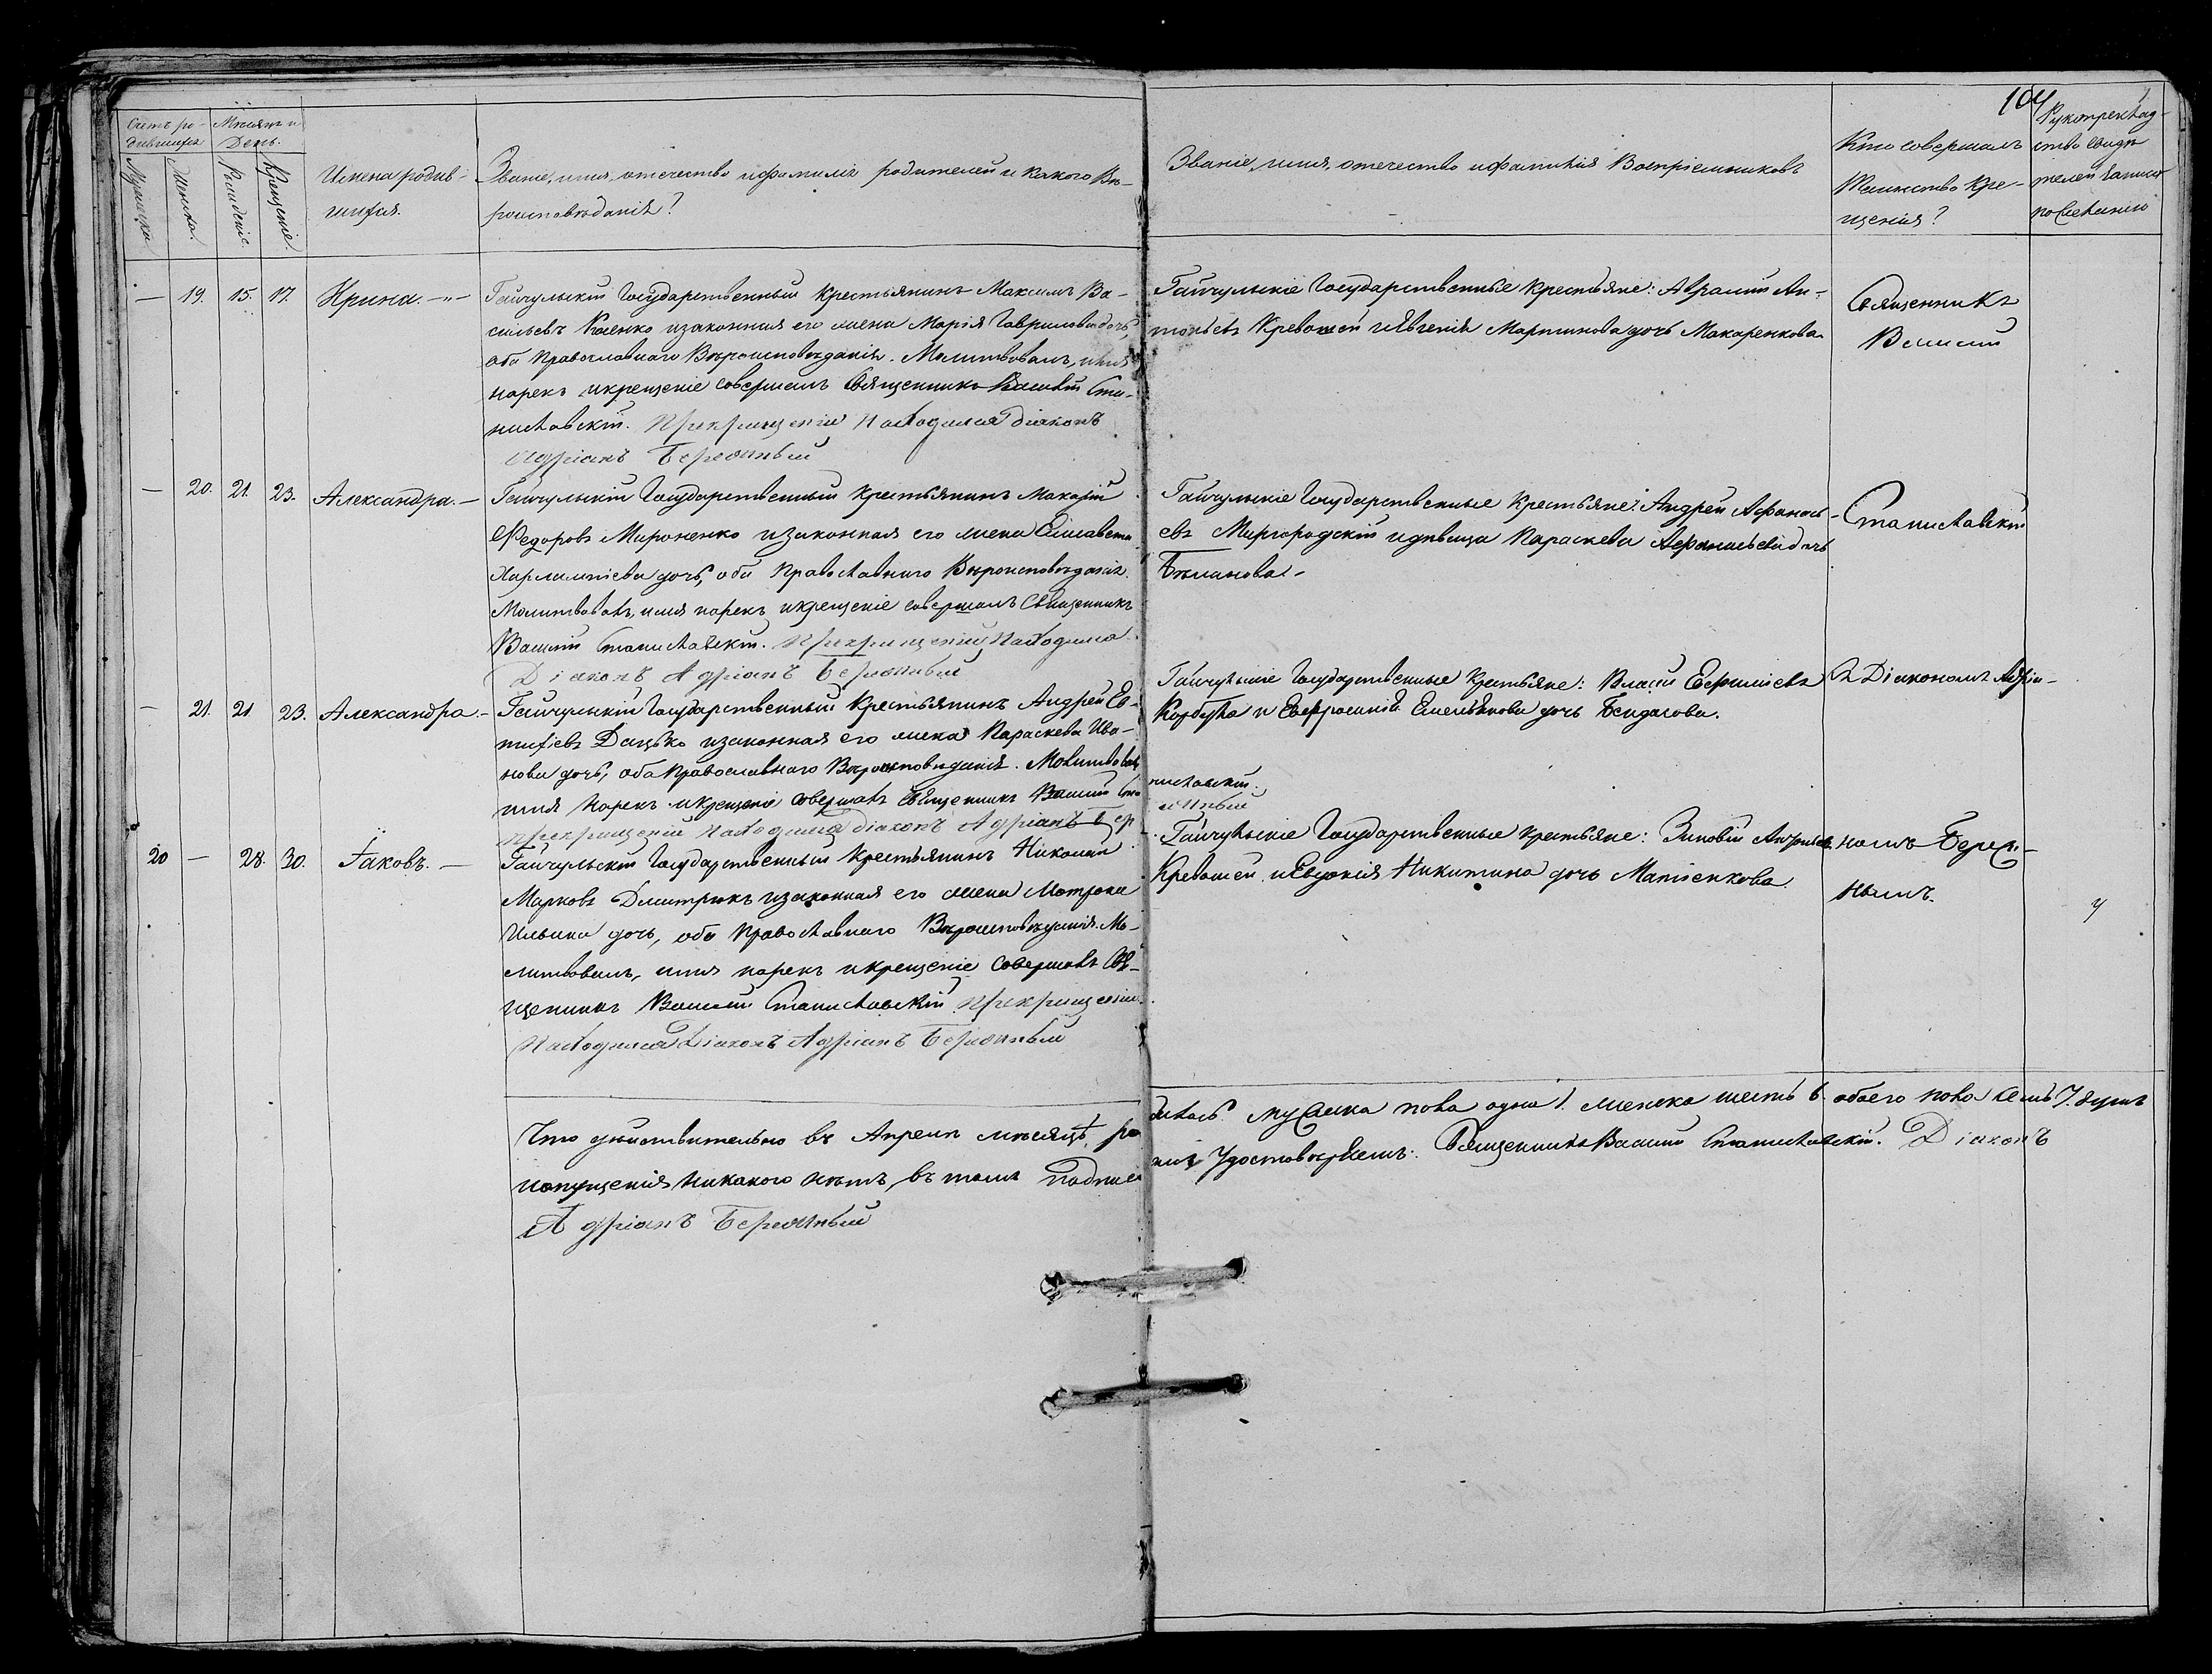 104
Счетъ ро-
дившихся
Мѣсяцъ и
День.
Мужеска
Женска.
Рожденіе.
Крещеніе
Имена родив-
шихся.
Званіе, имя, отечество и фамилія родителей и какого Вѣ-
роисповѣданія?
Званіе, имя, отечество и фамилія Воспріемниковъ
Кто совершалъ
Таинство Кре-
щенія?
Рукоприклад-
ство свидѣ
телей записи
по желанію
— 19. 15. 17. Ирина. —„—
Гайчульскій Государственный Крестьянинъ Максимъ Ва-
сильевъ и законная его жена Марія Гаврилова дочь,
оба Православнаго Вѣроисповѣданія. Молитвовалъ, имя
нарекъ и крещеніе совершалъ Священникъ Василій Ста-
ниславскій. При крещеніи находился діаконъ
Адріанъ
Гайчульскіе Государственные Крестьяне: Аврамій Ан-
тоньевъ Кревошей и Евгенія Мартинова дочь Макаренкова
Священникъ
Василій
— 20. 21. 23. Александра. —
Гайчульскій Государственный Крестьянинъ Макарій
Федоровъ Мироненко и законная его жена Елисавета
Харлампіева дочь, оба Православнаго Вѣроисповѣданія.
Молитвовалъ, имя нарекъ и крещеніе совершалъ Священникъ
Василій Станиславскій. При крещеніи находился
Діаконъ Адріанъ
Гайчульскіе Государственные Крестьяне: Андрей Афанась-
евъ Миргородскій и дѣвица Параскева Афанасьева дочь
Бѣланова.
Станиславскій
— 21. 21 23. Александра. —
Гайчульскій Государственный Крестьянинъ Андрей Ев-
тифіевъ Дацько и законная его жена Параскева Ива-
нова дочь, оба Православнаго Вѣроисповѣданія. Молитвовалъ
имя нарекъ и крещеніе совершалъ Священникъ Василій Ста
ниславскій.
при крещеніи находился діаконъ Адріанъ
Гайчульскіе Государственные Крестьяне: Власій Ефиміевъ
и Евфросинія Емельянова дочь
съ Діакономъ Адріа-
20 — 28. 30. Іаковъ. —
Гайчульскій Государственный Крестьянинъ Николай
Марковъ Дмитрюкъ и законная его жена Матрона
Ильина дочь, оба Православнаго Вѣроисповѣданія. Мо-
литвовалъ, имя нарекъ и крещеніе совершалъ Свя-
щенникъ Василій Станиславскій при крещеніи
находился Діаконъ Адріанъ
Гайчульскіе Государственные Крестьяне: Зиновій
Кревошей и Евдокія Никитина дочь Матіенкова
номъ
нымъ.
Что дѣйствительно въ Апрелѣ мѣсяцѣ, ро
дилось мужеска пола одна 1. женска шесть 6. обоего пола семь 7. душъ
и опущенія никакого нѣтъ, въ томъ подпи
Удостовѣряемъ: Священникъ Василій Станиславскій. Діаконъ
Адріанъ